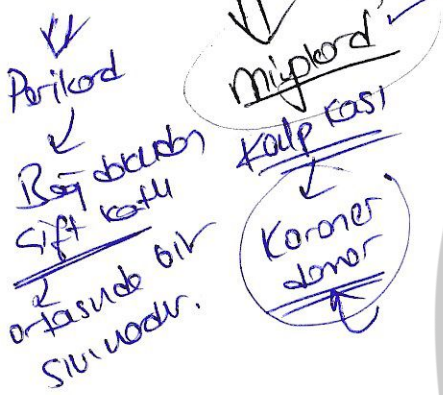 Perikord
Bağ dokudan
Çift katlı
ortasında bir
sıvı vardır.
Miyokord
Kalp kası
Koroner
damar